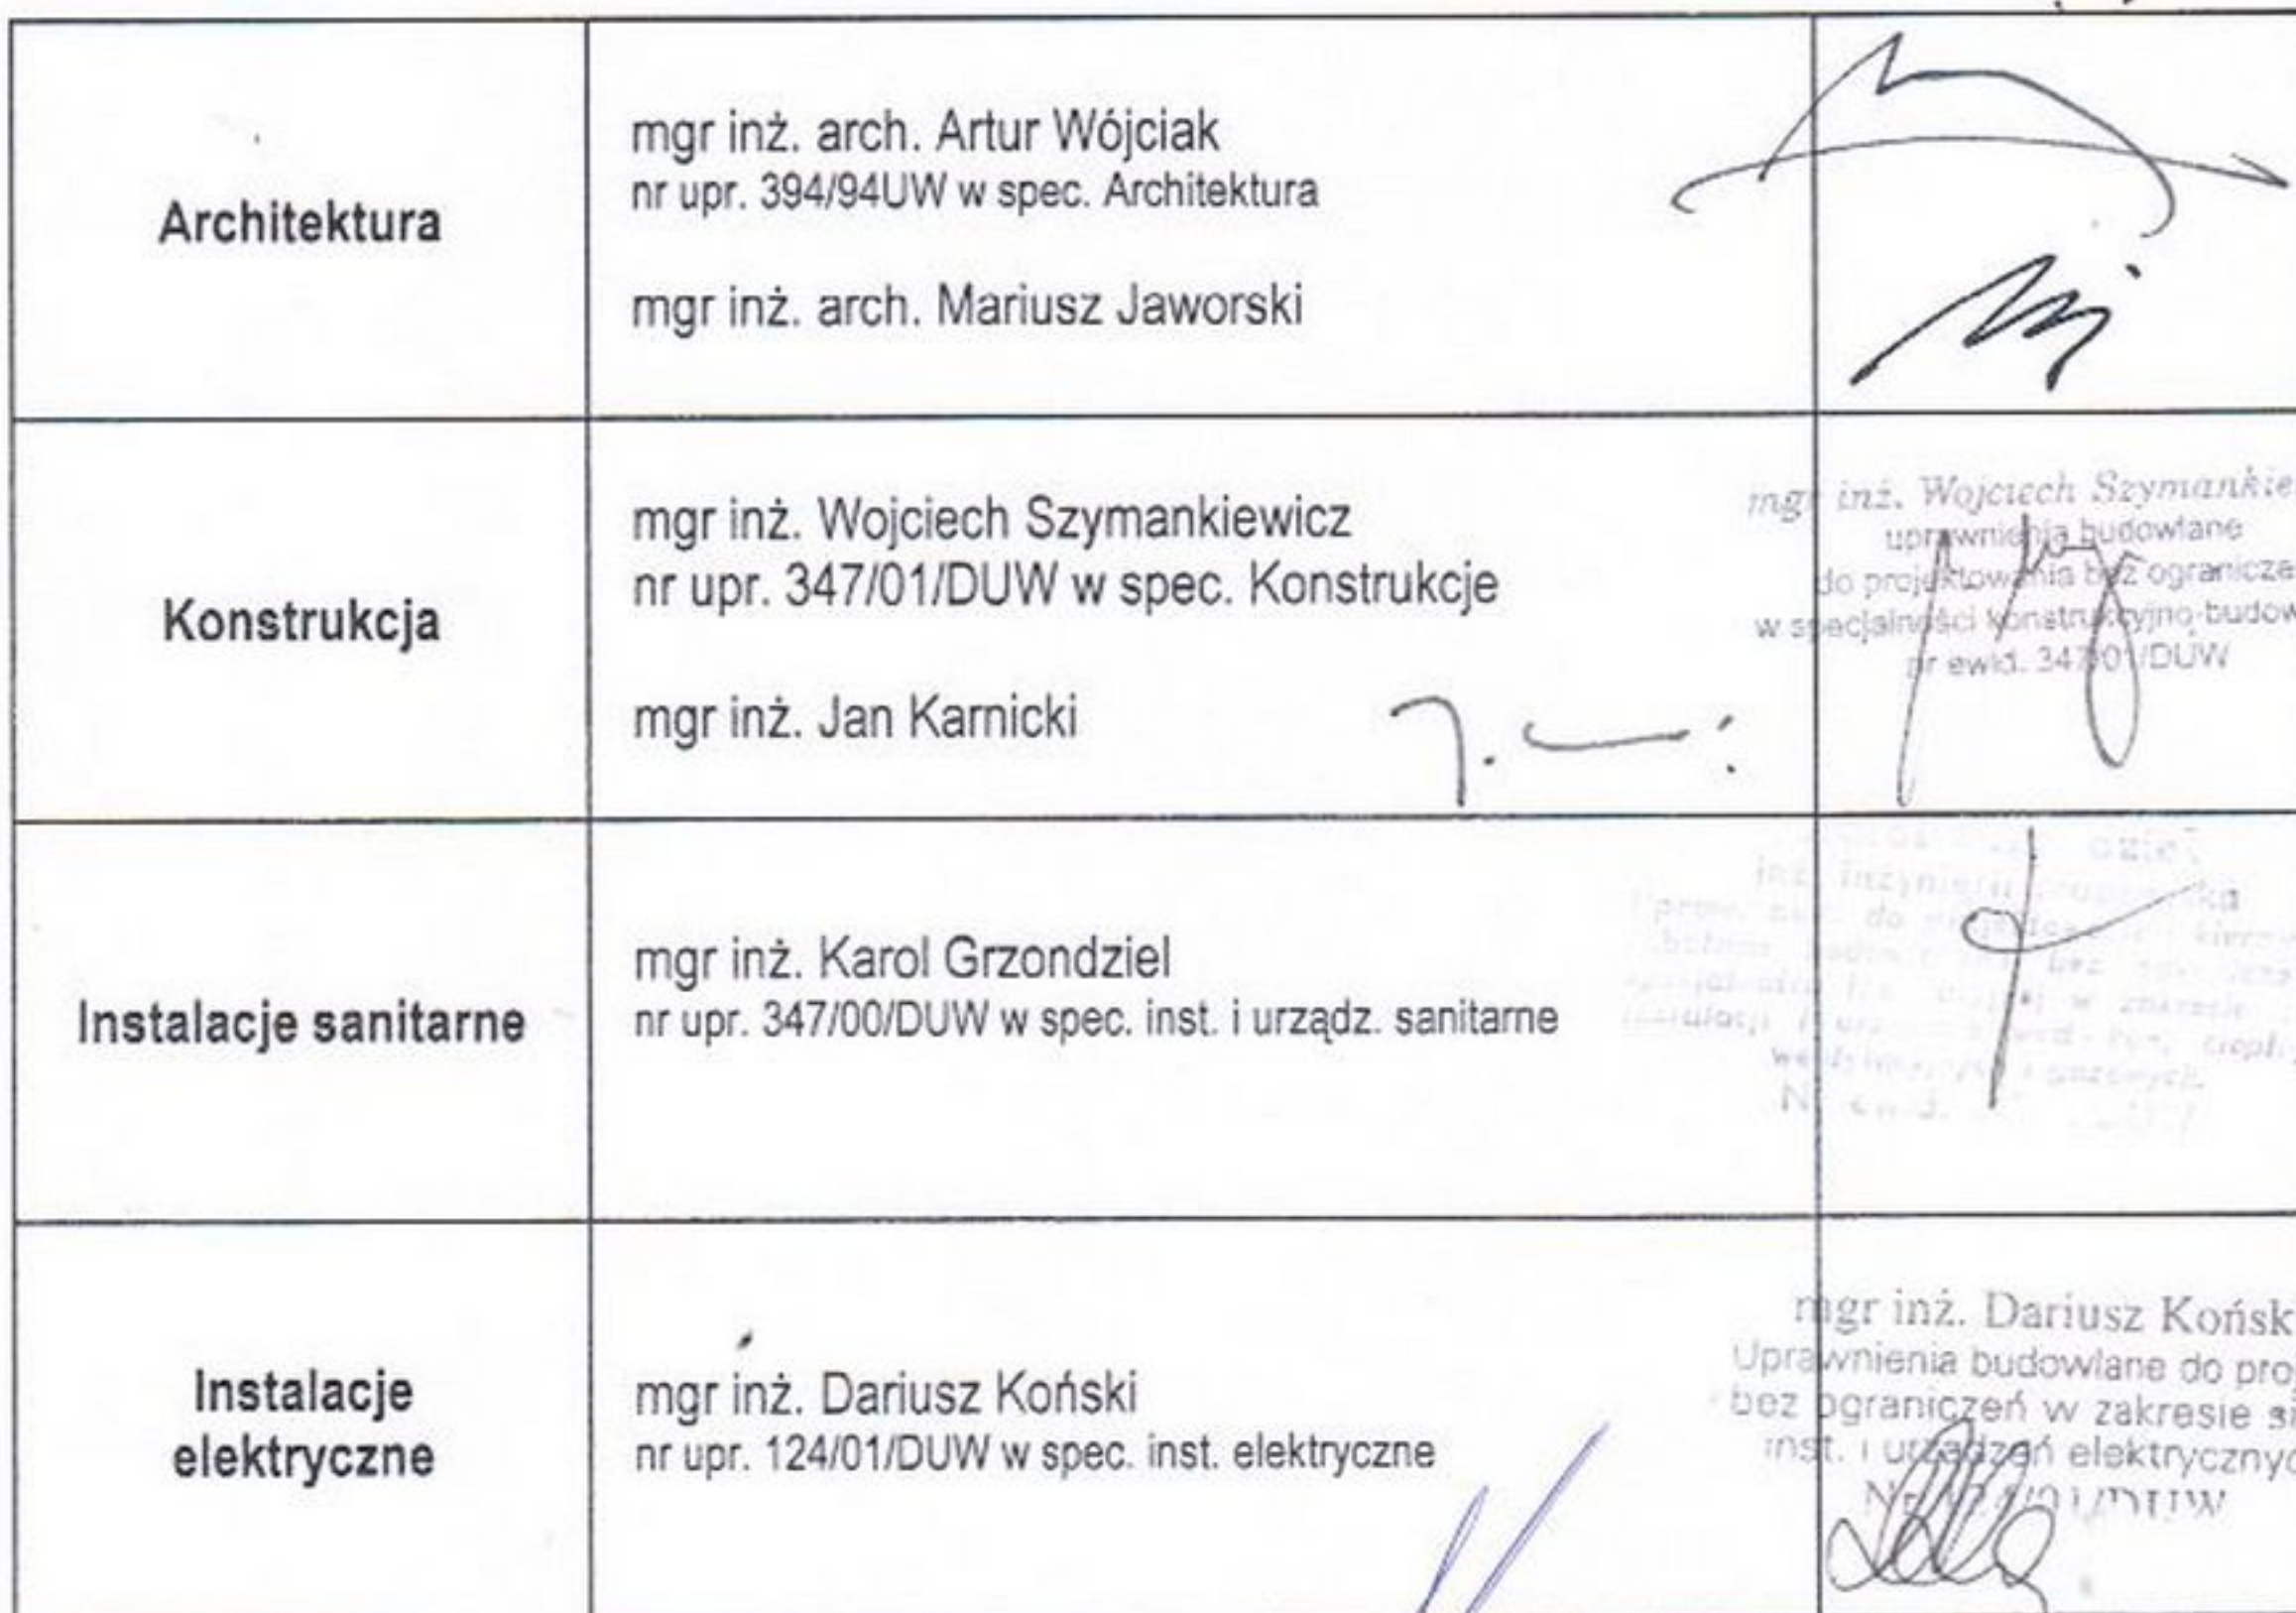 Architektura
mgr inż. arch. Artur Wójciak
nr upr. 394/94UW w spec. Architektura
mgr inż. arch. Mariusz Jaworski
Konstrukcja
mgr inż. Wojciech Szymankiewicz
nr upr. 347/01/DUW w spec. Konstrukcje
mgr inż. Jan Karnicki
mgr inż. Wojciech Szymankie
uprawnienia budowlane
do projektowania bez ogranicze
w specjalności konstrukcyjno-budow
nr ewid. 347/01/DUW
Instalacje sanitarne
mgr inż. Karol Grzondziel
nr upr. 347/00/DUW w spec. inst. i urządz. sanitarne
Instalacje
elektryczne
mgr inż. Dariusz Koński
nr upr. 124/01/DUW w spec. inst. elektryczne
mgr inż. Dariusz Końsk
Uprawnienia budowlane do pro
bez ograniczeń w zakresie si
inst. i urządzeń elektryczny
Nr 124/01/DUW